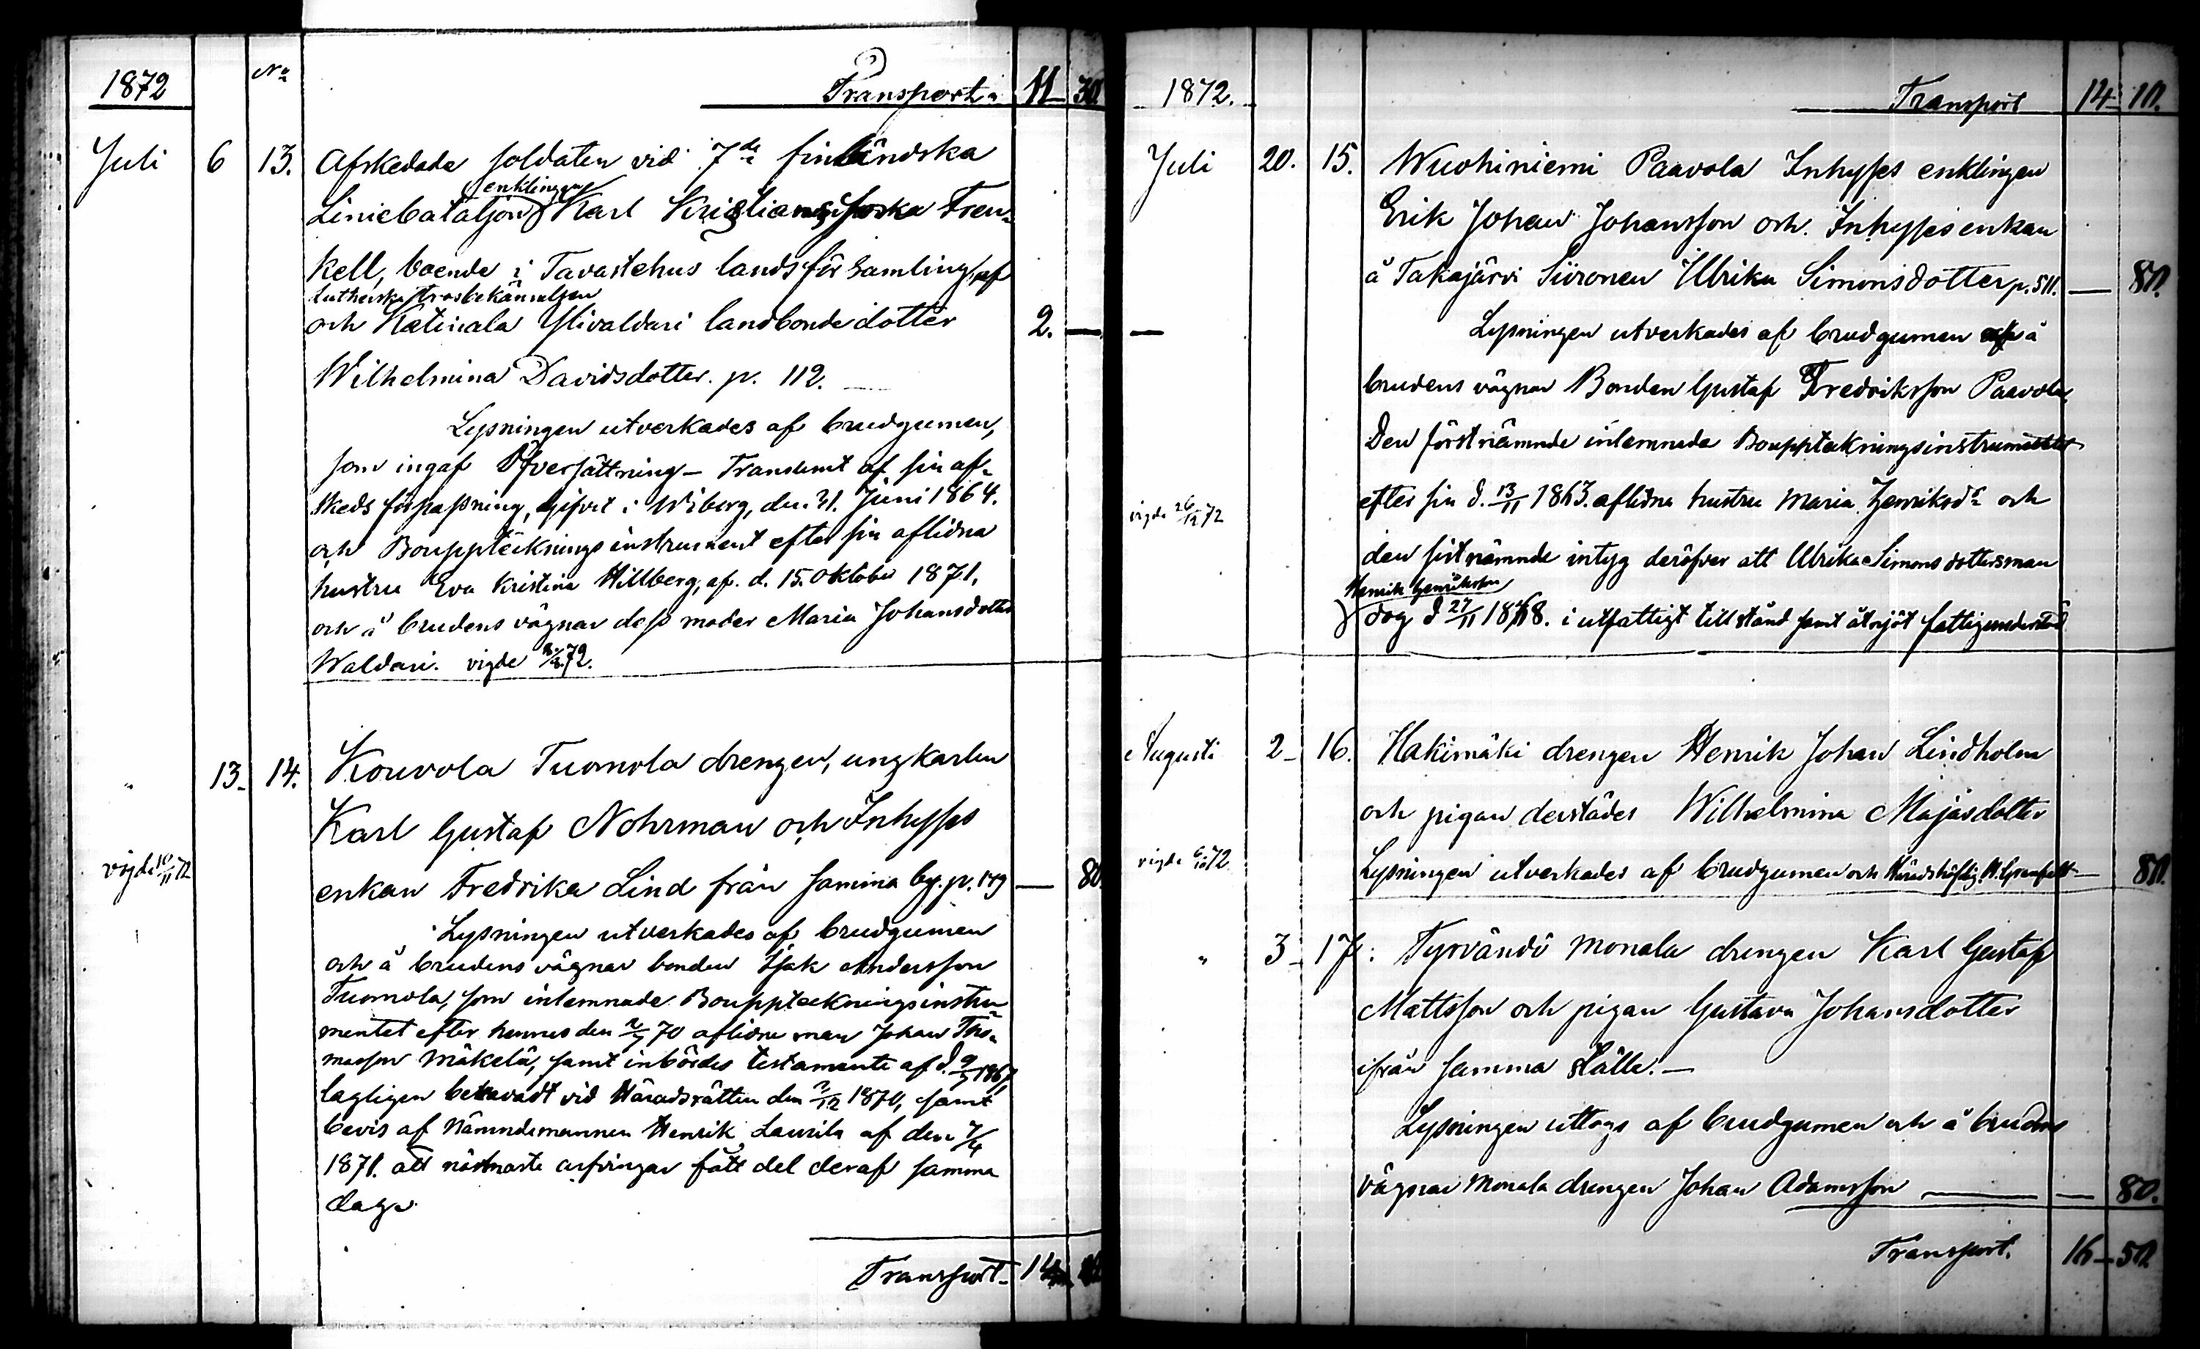 1872 No Transport 11 30
Juli 6 13. Afskedade soldaten vid 7de finländska
enklingen
Liniebataljon Karl Kristian Fren-
kell, boende i Tavastehus landsförsamling, af
Lutherska trosbekännelsen
och Katinala Ylivaldari landbonde dotter 2. —
Wilhelmina Davidsdotter. p. 112. —
Lysningen utverkades af brudgumen,
som ingaf Öfversättning - Transumt af sin af-
skeds förpassning, gifvet i Wiborg, den 21. Juni 1864.
och Bouppteckningsinstrument efter sin aflidna
hustru Eva Kristina Hillberg, af d. 15. Oktober 1871,
och å brudens vägnar dess moder Maria Johansdotter
Waldari. vigde 72.
" 13. 14. Kouvola Tuomola drengen, ungkarlen
Karl Gustaf Nohrman och Inhyses
vigde 10/11 72 enkan Fredrika Lind från samma by. p. 179 — 80
Lysningen utverkades af brudgumen
och å brudens vägnar bonden Isak Andersson
Tuomola, som inlemnade Bouppteckningsinstru-
mentet efter hennes den 70 aflidne man Johan Tho-
masson Mäkelä, samt inbördes testamente af d. 1867
lagligen bevakadt vid Häradsrätten den 1870, samt
bevis af Nämndemannen Henrik Laurila af den 7/4
1871. att närmaste arfvingar fått del deraf samma
dag.
Transport 14
1872. Transport 14 10.
Juli 20. 15. Wuohiniemi Paavola Inhyses enklingen
Erik Johan Johansson och Inhysesenkan
å Takajärvi Siironen Ulrika Simonsdotter p. 511. — 80.
— Lysningen utverkades af brudgumen å
brudens vägnar Bonden Gustaf Fredriksson Paavola,
Den förstnämnde inlemnade Bouppteckningsinstrumentet
vigde 26/12 72 efter sin d. 13/11 1863 aflidna hustru Maria Henriksdr och
den sistnämnde intyg deröfver att Ulrika Simonsdottersman
Henrik Henriksson
dog d 27/11 1868. i utfattigt tillstånd samt åtnjöt fattigunderstöd
Augusti 2 16. Hakimäki drengen Henrik Johan Lindholm
och pigan derstädes Wilhelmina Majasdotter
vigde 6/10 72 Lysningen utverkades af brudgumen och — 80.
" 3 17. Tyrvändö Monala drengen Karl Gustaf
Mattsson och pigan Gustava Johansdotter
ifrån samma ställe. —
Lysningen uttogs af brudgumen och å brudens
vägnar Monala drengen Johan Adamsson — 80.
Transport. 16 — 50